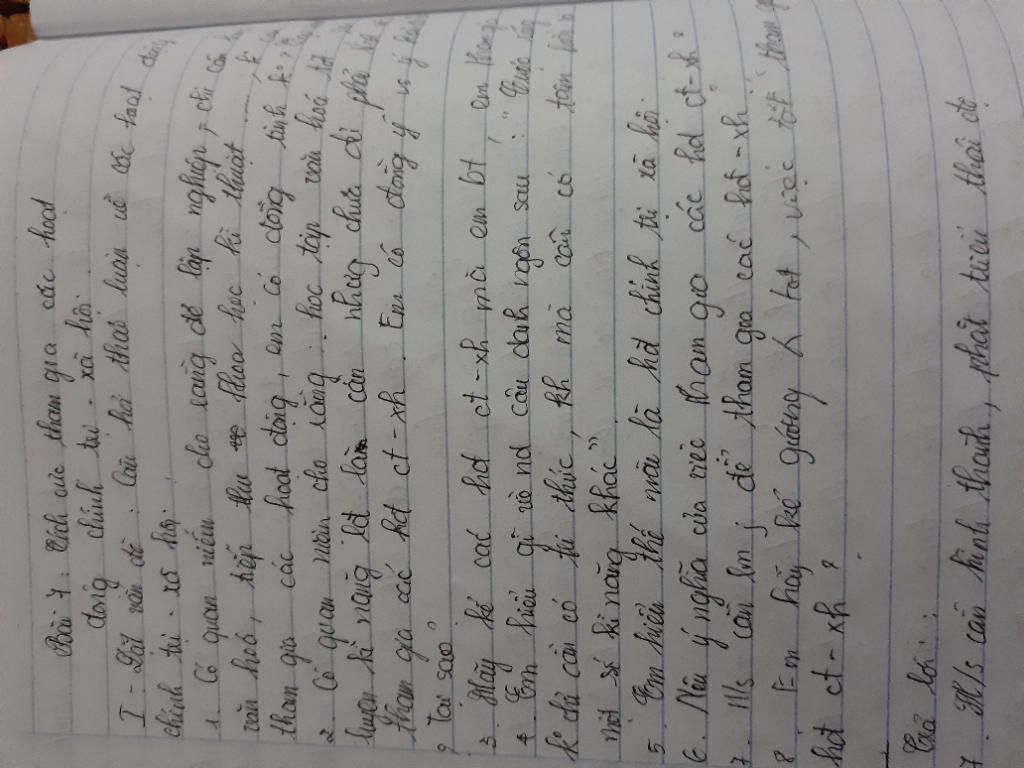 Bài 7: Tích cực tham gia các hoạt
động chính trị - xã hội
I - Đặt vấn đề: Câu hỏi thảo luận về các hoạt động
chính trị - xã hội.
1. Có quan niệm cho rằng để lập nghiệp, chỉ cần
văn hoá, tiếp thu khoa học kĩ thuật
tham gia các hoạt động, em có đồng tình k?
2. Có quan niệm cho rằng: học tập văn hoá tốt
luyện kĩ năng lđ là cần nhưng chưa đủ phải
tham gia các hđ ct-xh. Em có đồng ý vs ý
? Tại sao
3. Hãy kể các hđ ct-xh mà em bt, em tham
4. Em hiểu gì về nd câu danh ngôn sau: "Cuộc sống
k chỉ cần có tri thức, kh mà cần có
một số kĩ năng khác"
5. Em hiểu thế nào là hđ chính trị xã hội
6. Nêu ý nghĩa của việc tham gia các hđ ct-xh?
7. H/s cần lm j để tham gia các hđ ct-xh
8. Em hãy kể gương tốt, việc tốt tham
hđ ct-xh?
Trả lời:
7. H/s cần hình thành, phát triển thái độ